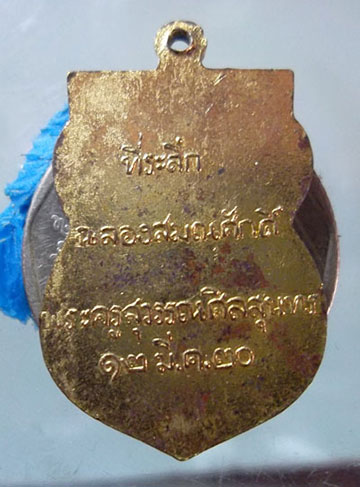 ที่ระลึก
ฉลองสมณศักดิ์
พระครูสุวรรณศีลสุนทร
๑๒ มี.ค.๒๐